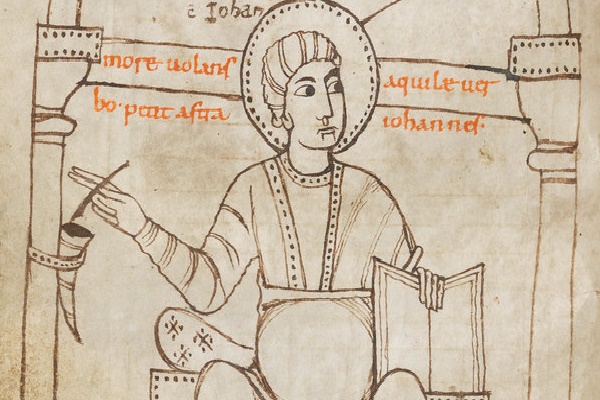 Iohan
more uolans aquile uer
bo· petit astra iohannes·